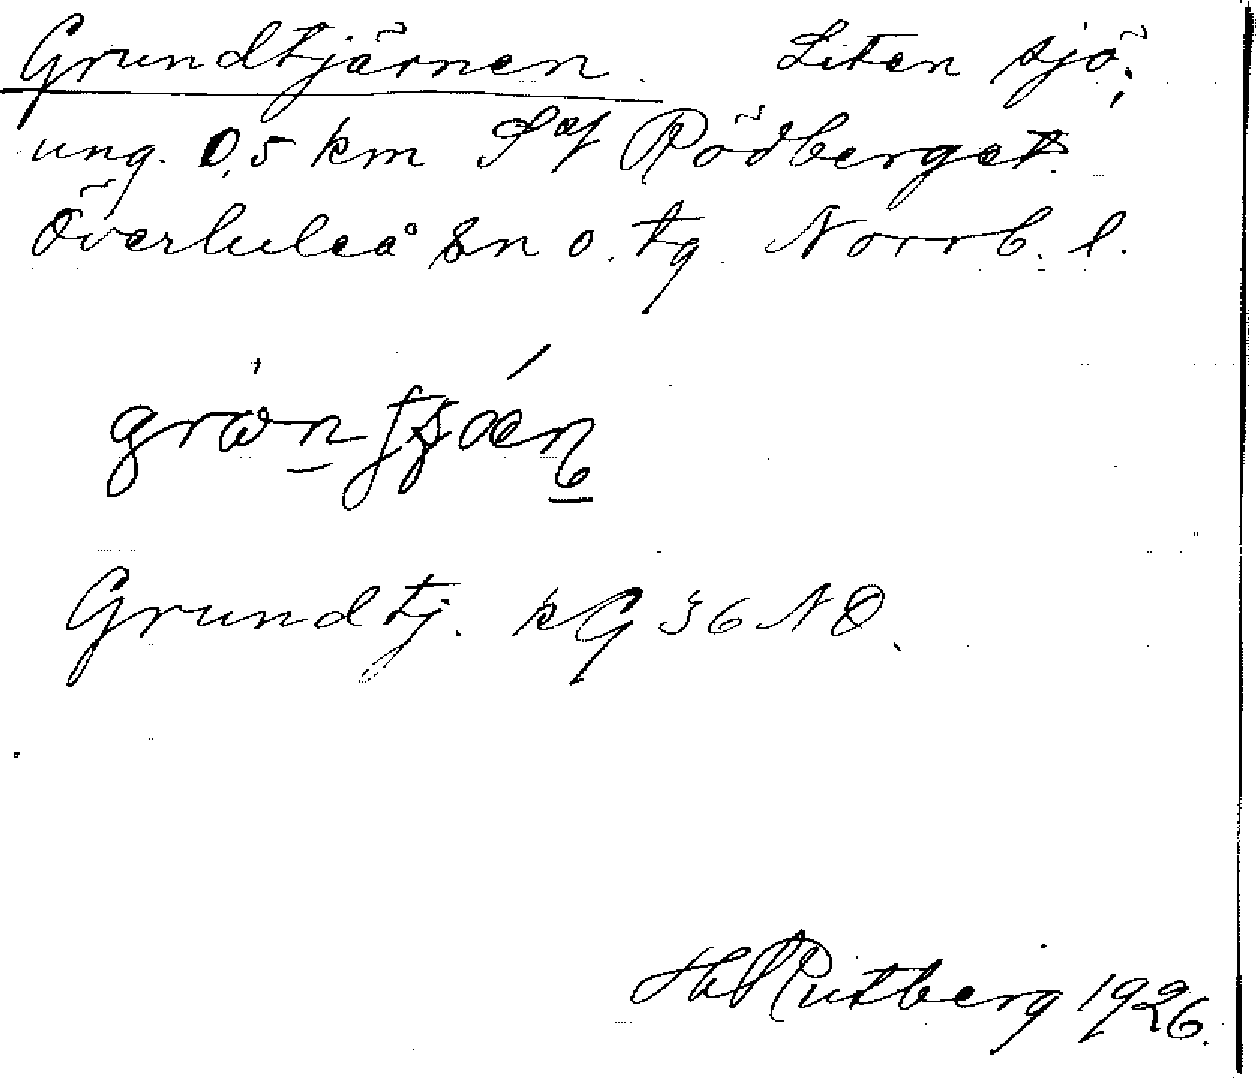 Grundtjärnen. Liten sjö;
ung. 0,5 km S af Rödberget.
Överluleå sn o. tg. Norrb. l.
Grundtj. kG 36 NO.
Rutberg 1926.